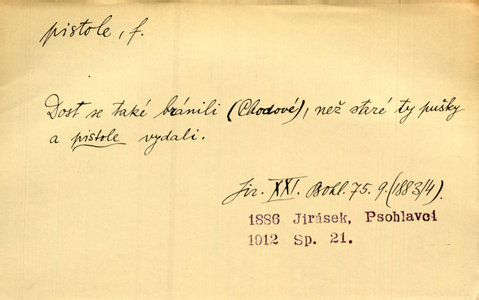 pistole, f.
Dost se také bránili (Chodové), než staré ty pušky
a pistole vydali.
Jir. XXI. Bohl. 75. 9. (1883/4).
1886 Jirásek, Psohlavci
1912 Sp. 21.